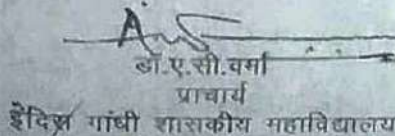 डॉ.ए.सी.वर्मा
प्राचार्य
इंदिरा गांधी शासकीय महाविद्यालय